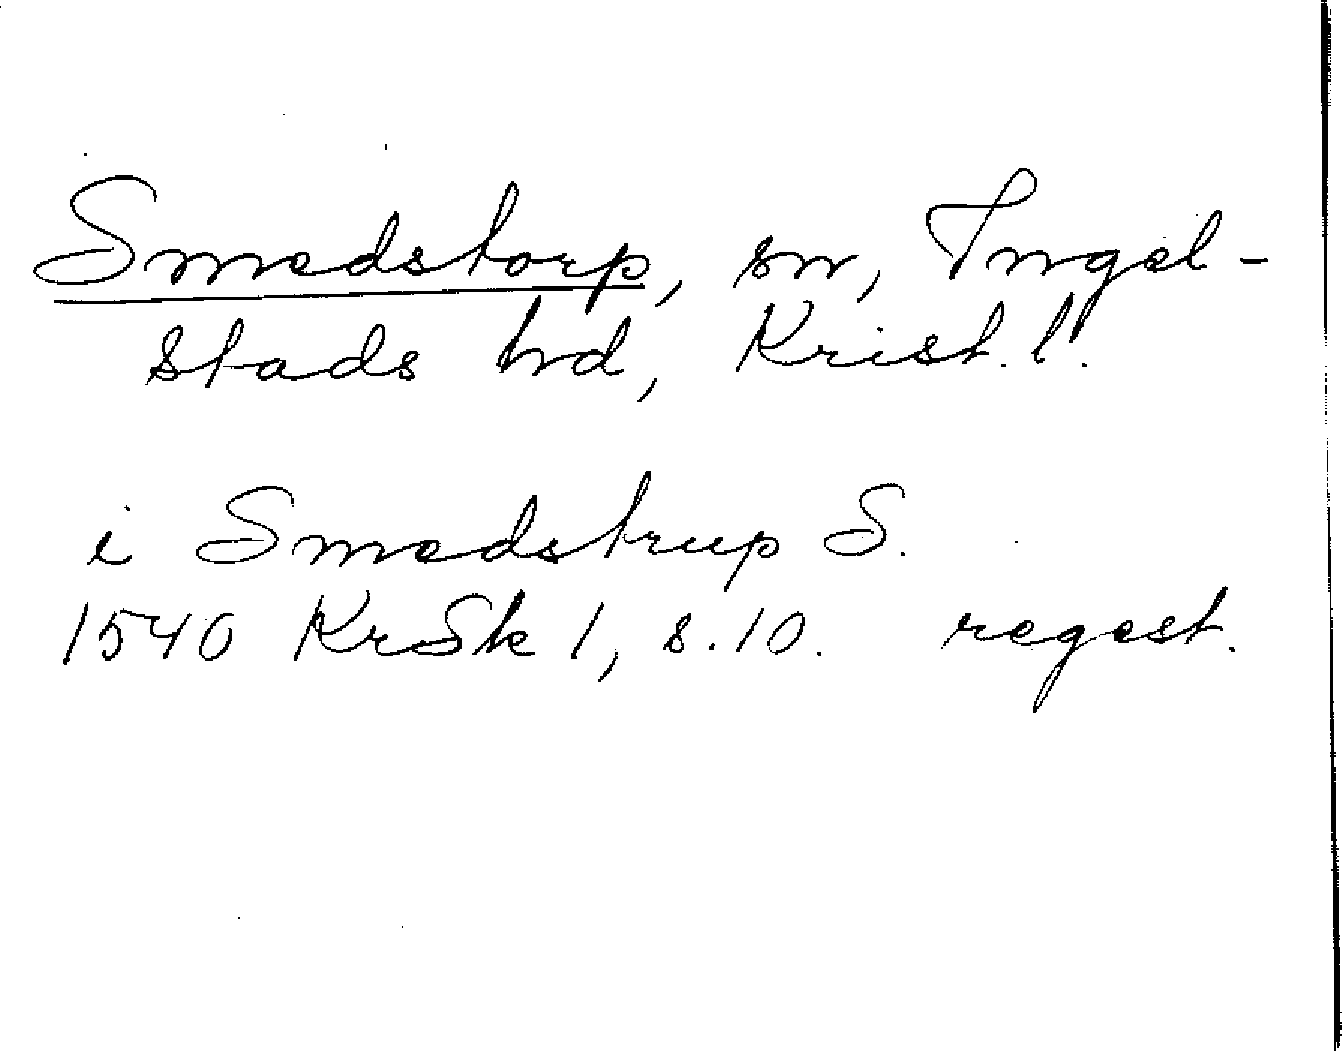 Smedstorp, sn, Ingel-
stads hd, Krist. l.
i Smedstrup S.
1540 KrSk 1, s. 10. regest.